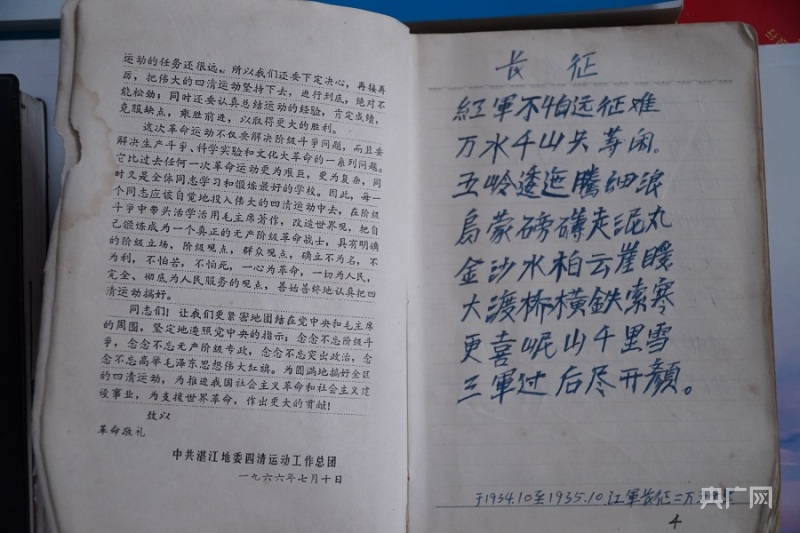 运动的任务还很远，所以我们还要下定决心，再接再
厉，把伟大的四清运动坚持下去，进行到底，绝对不
能松劲；同时还要认真总结运动的经验，肯定成绩，
克服缺点，乘胜前进，以取得更大的胜利。
这次革命运动不仅要解决阶级斗争问题，而且要
解决生产斗争、科学实验和文化大革命的一系列问题。
它比过去任何一次革命运动更为艰巨，更为复杂，同
时又是全体同志学习和锻炼最好的学校。因此，每一
个同志应该自觉地投入伟大的四清运动中去，在阶级
斗争中带头活学活用毛主席著作，改造世界观，把自
己锻炼成为一个真正的无产阶级革命战士，具有明确
的阶级立场，阶级观点，群众观点，确立不为名，不
为利，不怕苦，不怕死，一心为革命，一切为人民，
完全、彻底为人民服务的观点，善始善终地认真把四
清运动搞好。
同志们！让我们更紧密地团结在党中央和毛主席
的周围，坚定地遵照党中央的指示：念念不忘阶级斗
争，念念不忘无产阶级专政，念念不忘突出政治，念
念不忘高举毛泽东思想伟大红旗。为圆满地搞好全区
的四清运动，为推进我国社会主义革命和社会主义建
设事业，为支援世界革命，作出更大的贡献！
致以
革命敬礼
中共湛江地委四清运动工作总团
一九六六年七月十日
长征
紅軍不怕远征难
万水千山失等闲。
五岭透迤騰細浪
烏蒙磅礴走泥丸
金沙水柏云崖暖
大渡桥橫鉄索寒
更喜岷山千里雪
三軍过后尽开顏。
于1934.10至1935.10红軍長征二万
4
央广网